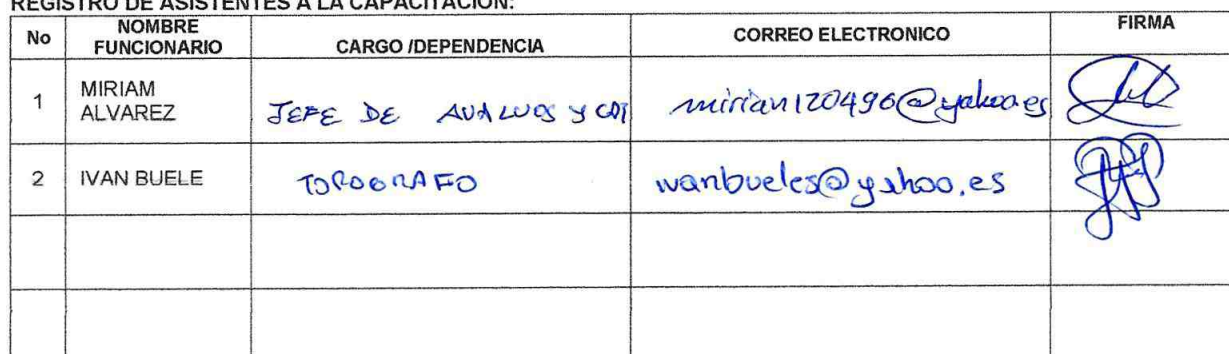 REGISTRO DE ASISTENTES A LA CAPACITACIÓN:
No NOMBRE FUNCIONARIO CARGO /DEPENDENCIA CORREO ELECTRONICO FIRMA
1 MIRIAM ALVAREZ JEFE DE AVALUOS Y CAT mirian120496@yahoo.es
2 IVAN BUELE TOPOGRAFO ivanbueles@yahoo.es